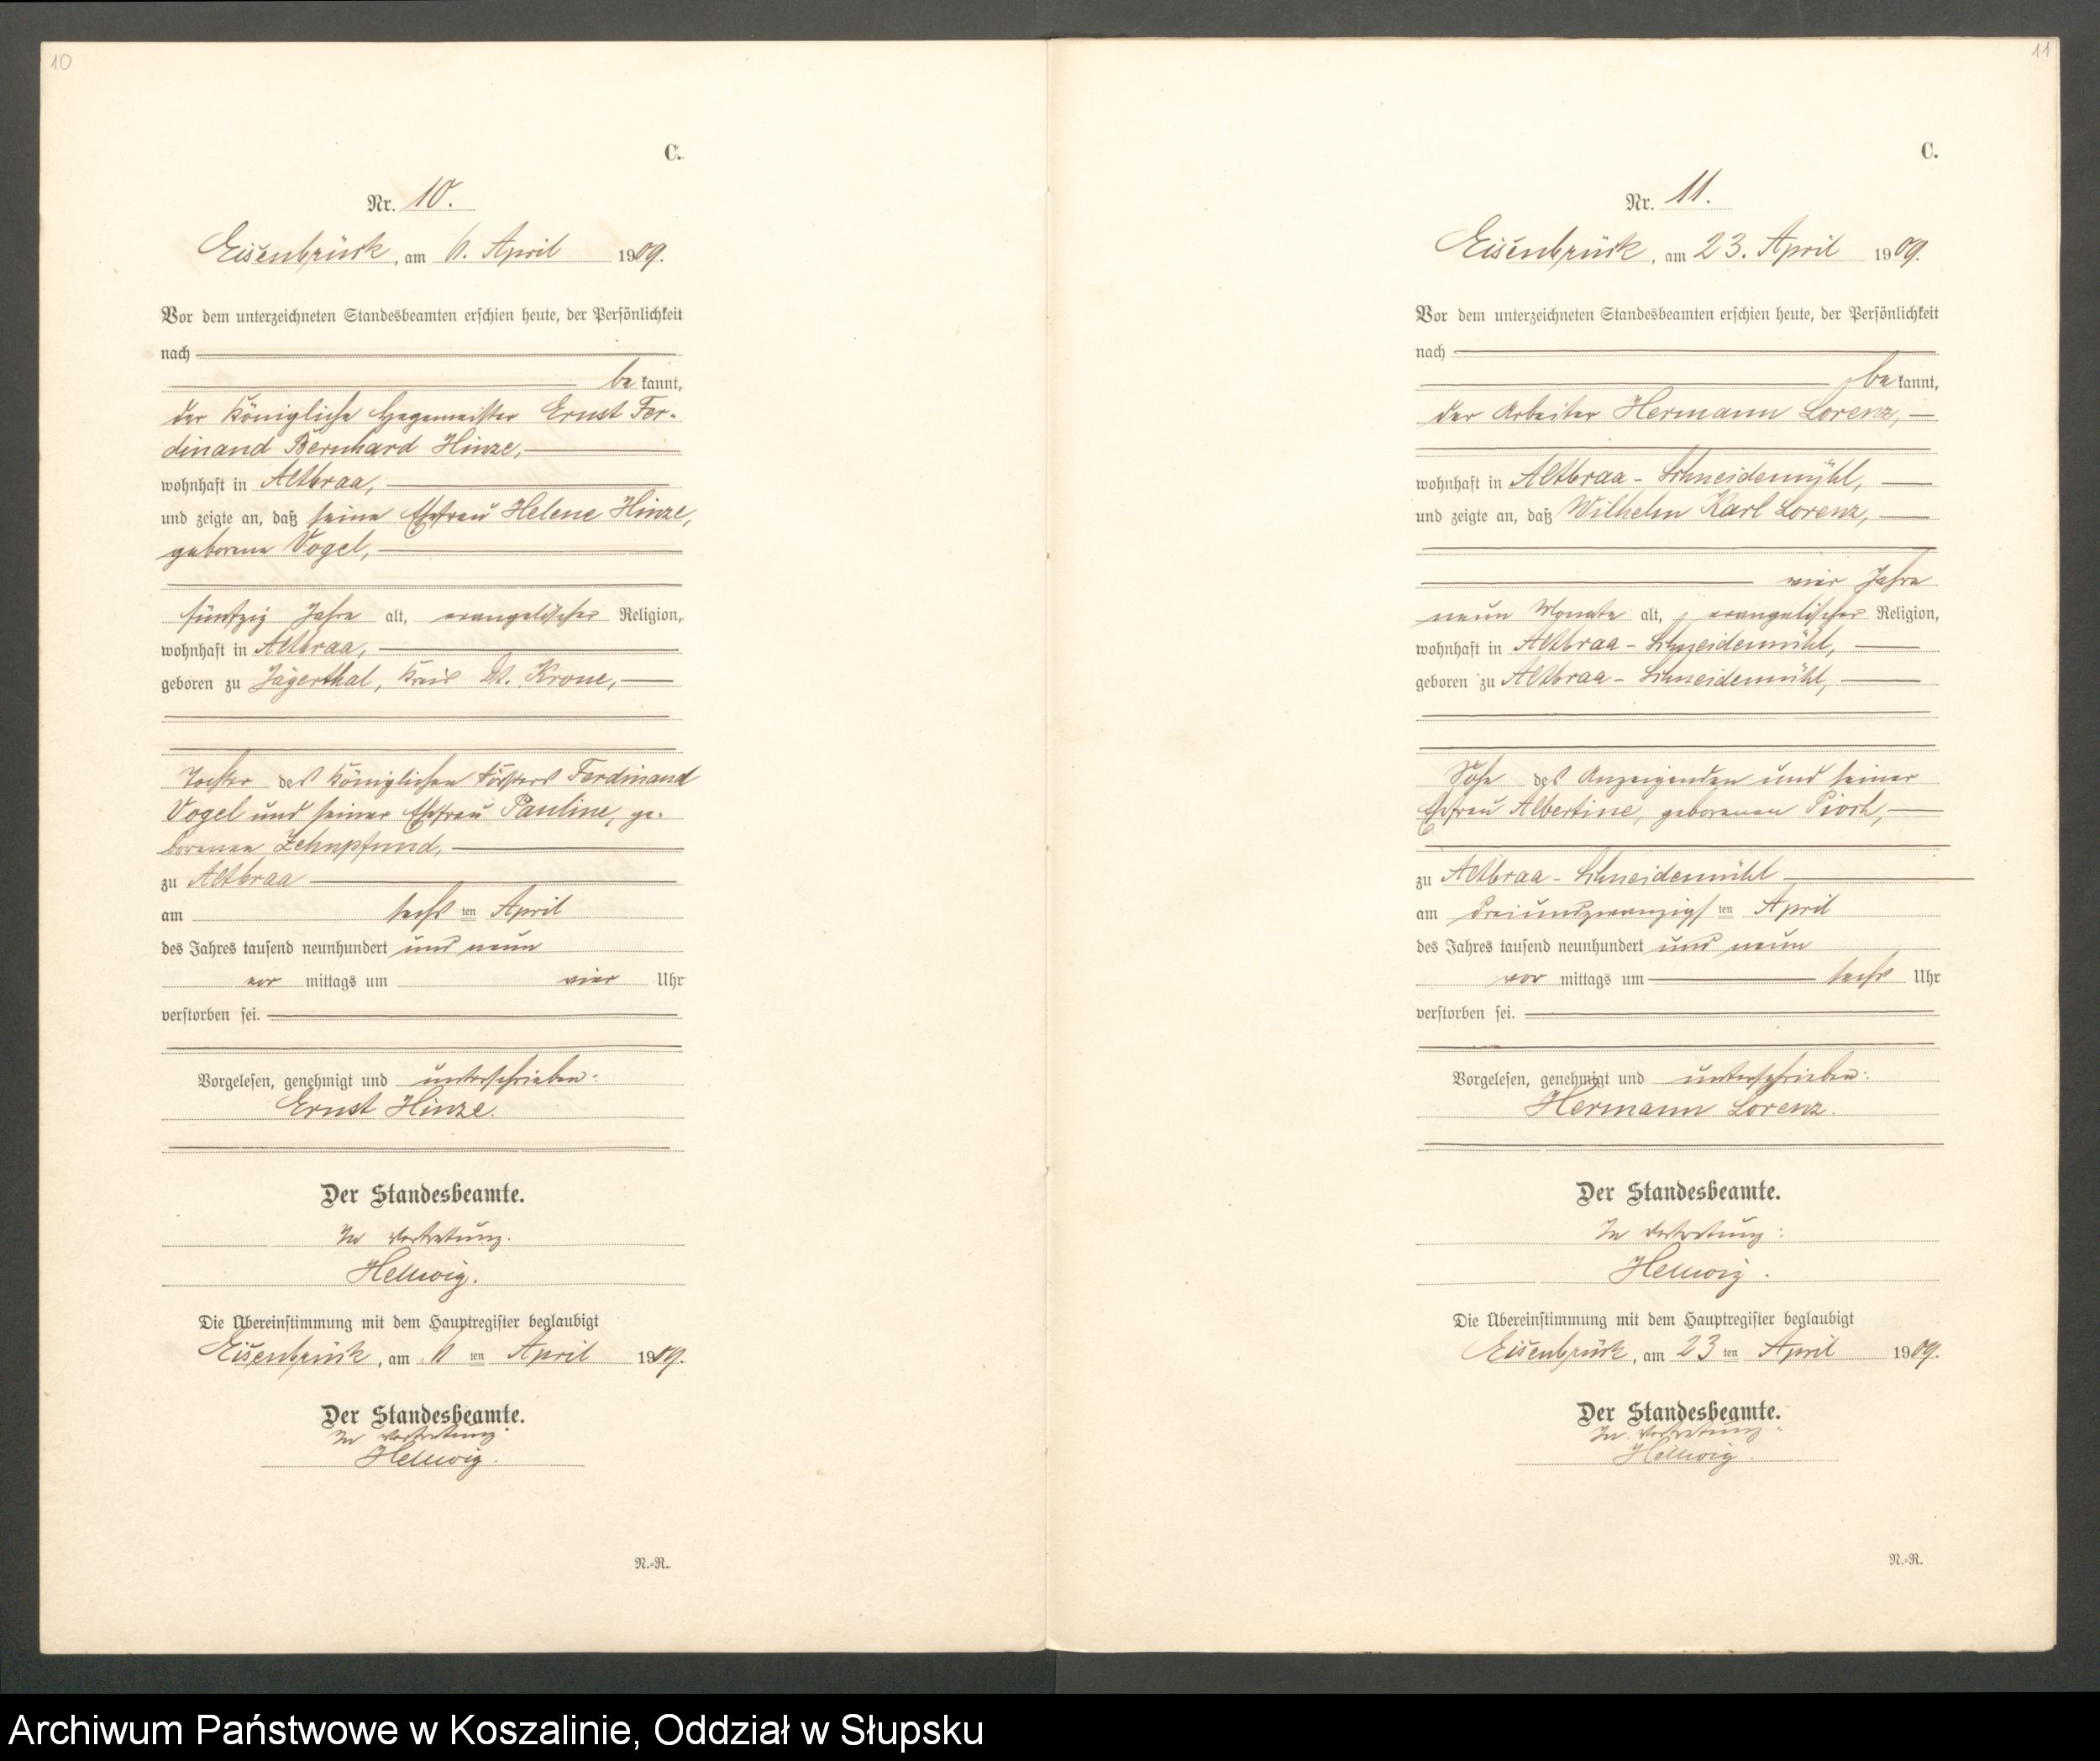 10
C.
Nr. 10.
Eisenbrück, am 6. April 1909.
Vor dem unterzeichneten Standesbeamten erschien heute, der Persönlichkeit
nach
be kannt,
der Königliche Hegemeister Ernst Fer-
dinand Bernhard Hinze,
wohnhaft in Altbraa,
und zeigte an, daß seine Ehefrau Helene Hinze,
geborene Vogel,
fünfzig Jahre alt, evangelischer Religion,
wohnhaft in Altbraa,
geboren zu Jägerthal, Kreis Dt. Krone,
Tochter des Königlichen Försters Ferdinand
Vogel und seiner Ehefrau Pauline, ge-
borenen Zehnpfund,
zu Altbraa
am sechs ten April
des Jahres tausend neunhundert und neun
vor mittags um vier Uhr
verstorben sei.
Vorgelesen, genehmigt und unterschrieben:
Ernst Hinze.
Der Standesbeamte.
In Vertretung.
Hellwig.
Die Übereinstimmung mit dem Hauptregister beglaubigt
Eisenbrück, am 6 ten April 1909.
Der Standesbeamte.
In Vertretung:
Hellwig.
N.-R.
11
C.
Nr. 11.
Eisenbrück, am 23. April 1909.
Vor dem unterzeichneten Standesbeamten erschien heute, der Persönlichkeit
nach
be kannt,
der Arbeiter Hermann Lorenz,
wohnhaft in Altbraa-Schneidemühl,
und zeigte an, daß Wilhelm Karl Lorenz,
vier Jahre
neun Monate alt, evangelischer Religion,
wohnhaft in Altbraa-Schneidemühl,
geboren zu Altbraa-Schneidemühl,
Sohn des Anzeigenden und seiner
Ehefrau Albertine, geborenen Pioch,
zu Altbraa-Schneidemühl
am dreiundzwanzigs ten April
des Jahres tausend neunhundert und neun
vor mittags um sechs Uhr
verstorben sei.
Vorgelesen, genehmigt und unterschrieben:
Hermann Lorenz.
Der Standesbeamte.
In Vertretung:
Hellwig.
Die Übereinstimmung mit dem Hauptregister beglaubigt
Eisenbrück, am 23 ten April 1909.
Der Standesbeamte.
In Vertretung:
Hellwig.
N.-R.
Archiwum Państwowe w Koszalinie, Oddział w Słupsku